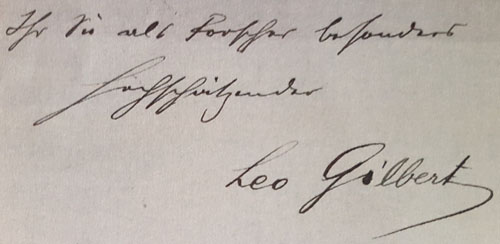 Ihr Sie als Forscher besonders
hochschätzender
Leo Gilbert